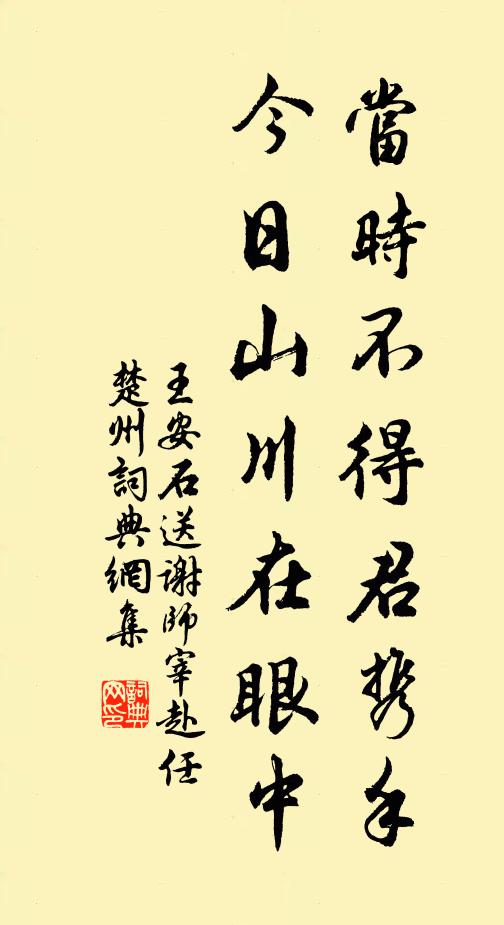 當時不得君携手
今日山川在眼中
王安石送謝師宰赴任
楚州詞典網集
詞典
网印